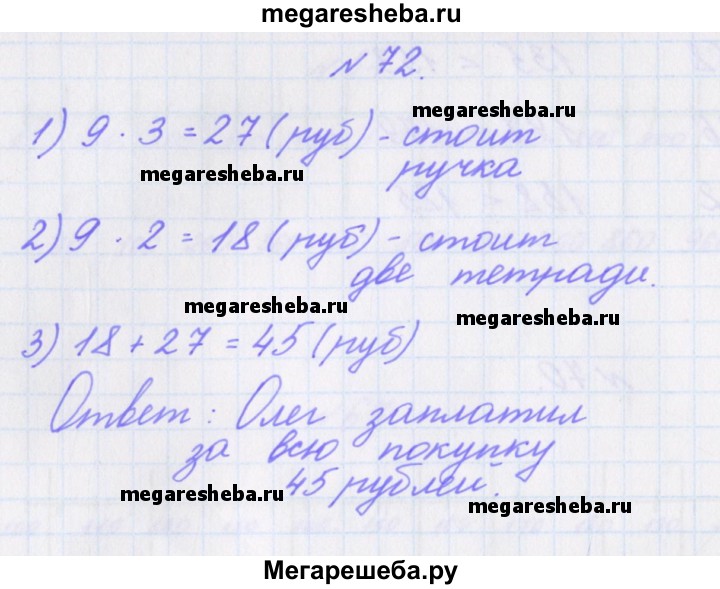 megaresheba.ru
№ 72.
megaresheba.ru
1) 9 · 3 = 27 (руб) - стоит
megaresheba.ru
ручка
2) 9 · 2 = 18 (руб) - стоит
две тетради.
megaresheba.ru
megaresheba.ru
3) 18 + 27 = 45 (руб)
Ответ: Олег заплатил
за всю покупку
45 рублей.
megaresheba.ru
megaresheba.ru
Мегарешеба.ру